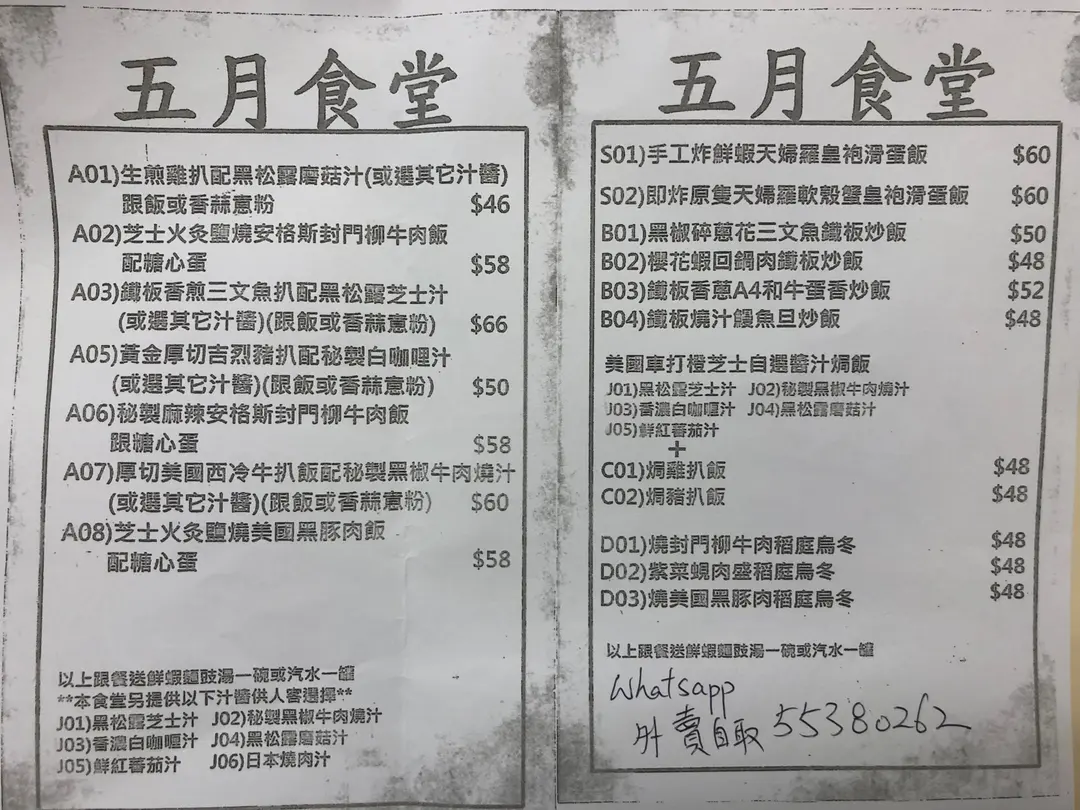 五月食堂
A01)生煎雞扒配黑松露磨菇汁(或選其它汁醬)
跟飯或香蒜意粉 $46
A02)芝士火灸鹽燒安格斯封門柳牛肉飯
配糖心蛋 $58
A03)鐵板香煎三文魚扒配黑松露芝士汁
(或選其它汁醬)(跟飯或香蒜意粉) $66
A05)黃金厚切吉烈豬扒配秘製白咖喱汁
(或選其它汁醬)(跟飯或香蒜意粉) $50
A06)秘製麻辣安格斯封門柳牛肉飯
跟糖心蛋 $58
A07)厚切美國西冷牛扒飯配秘製黑椒牛肉燒汁
(或選其它汁醬)(跟飯或香蒜意粉) $60
A08)芝士火灸鹽燒美國黑豚肉飯
配糖心蛋 $58
以上跟餐送鮮蝦麵豉湯一碗或汽水一罐
**本食堂另提供以下汁醬供人客選擇**
J01)黑松露芝士汁 J02)秘製黑椒牛肉燒汁
J03)香濃白咖喱汁 J04)黑松露磨菇汁
J05)鮮紅蕃茄汁 J06)日本燒肉汁
五月食堂
S01)手工炸鮮蝦天婦羅皇袍滑蛋飯 $60
S02)即炸原隻天婦羅軟殼蟹皇袍滑蛋飯 $60
B01)黑椒碎蔥花三文魚鐵板炒飯 $50
B02)櫻花蝦回鍋肉鐵板炒飯 $48
B03)鐵板香蔥A4和牛蛋香炒飯 $52
B04)鐵板燒汁鰻魚旦炒飯 $48
美國車打橙芝士自選醬汁焗飯
J01)黑松露芝士汁 J02)秘製黑椒牛肉燒汁
J03)香濃白咖喱汁 J04)黑松露磨菇汁
J05)鮮紅蕃茄汁
+
C01)焗雞扒飯 $48
C02)焗豬扒飯 $48
D01)燒封門柳牛肉稻庭烏冬 $48
D02)紫菜蜆肉盛稻庭烏冬 $48
D03)燒美國黑豚肉稻庭烏冬 $48
以上跟餐送鮮蝦麵豉湯一碗或汽水一罐
Whatsapp
外賣自取 55380262